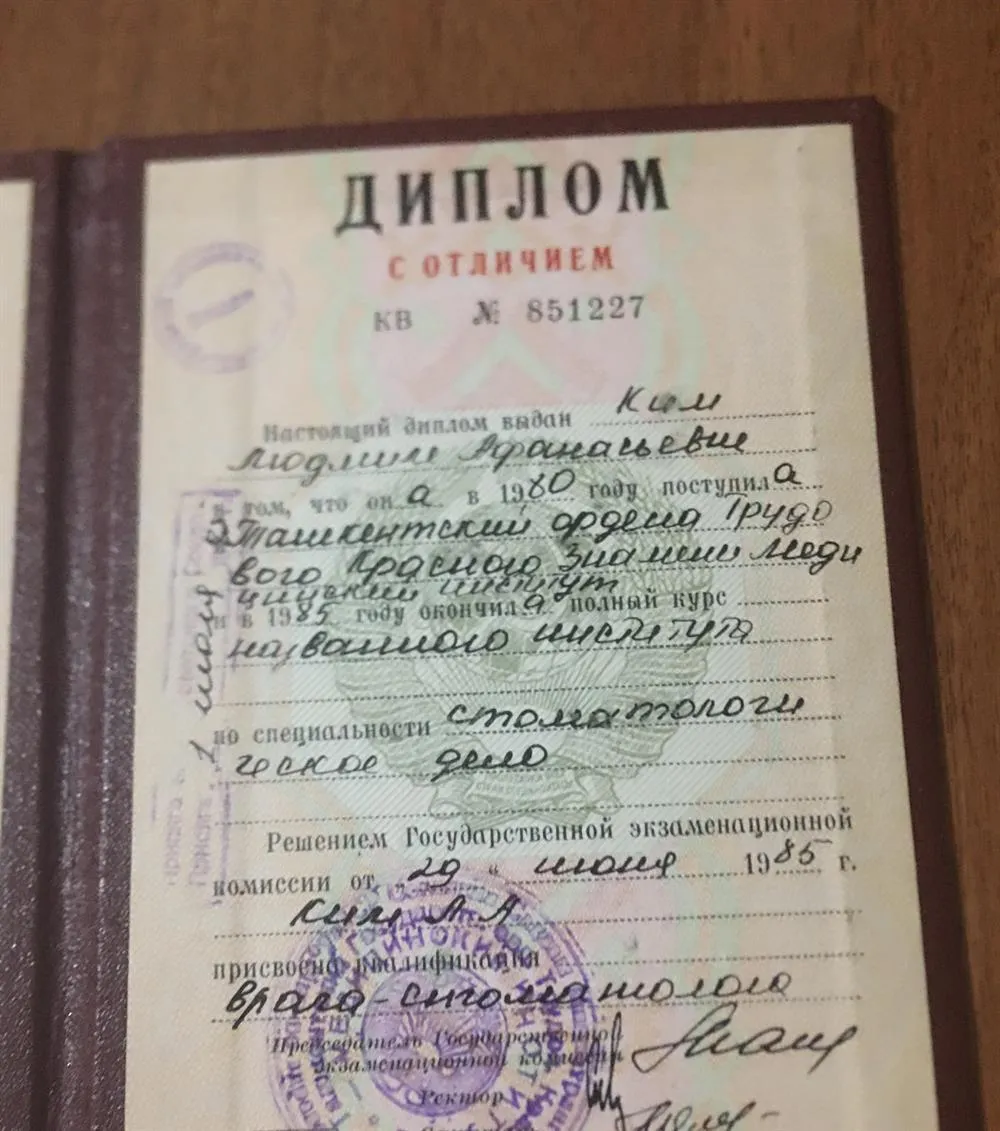 ДИПЛОМ
С ОТЛИЧИЕМ
КВ № 851227
Настоящий диплом выдан Ким
Людмиле Афанасьевне
в том, что она в 1980 году поступила
в Ташкентский ордена Трудо
вого Красного Знамени меди
цинский институт
и в 1985 году окончила полный курс
названного института
по специальности стоматологи
ческое дело
Решением Государственной экзаменационной
комиссии от „29“ июня 1985 г.
Ким Л А
присвоена квалификация
врача-стоматолога
Председатель Государственной
экзаменационной комиссии
Ректор